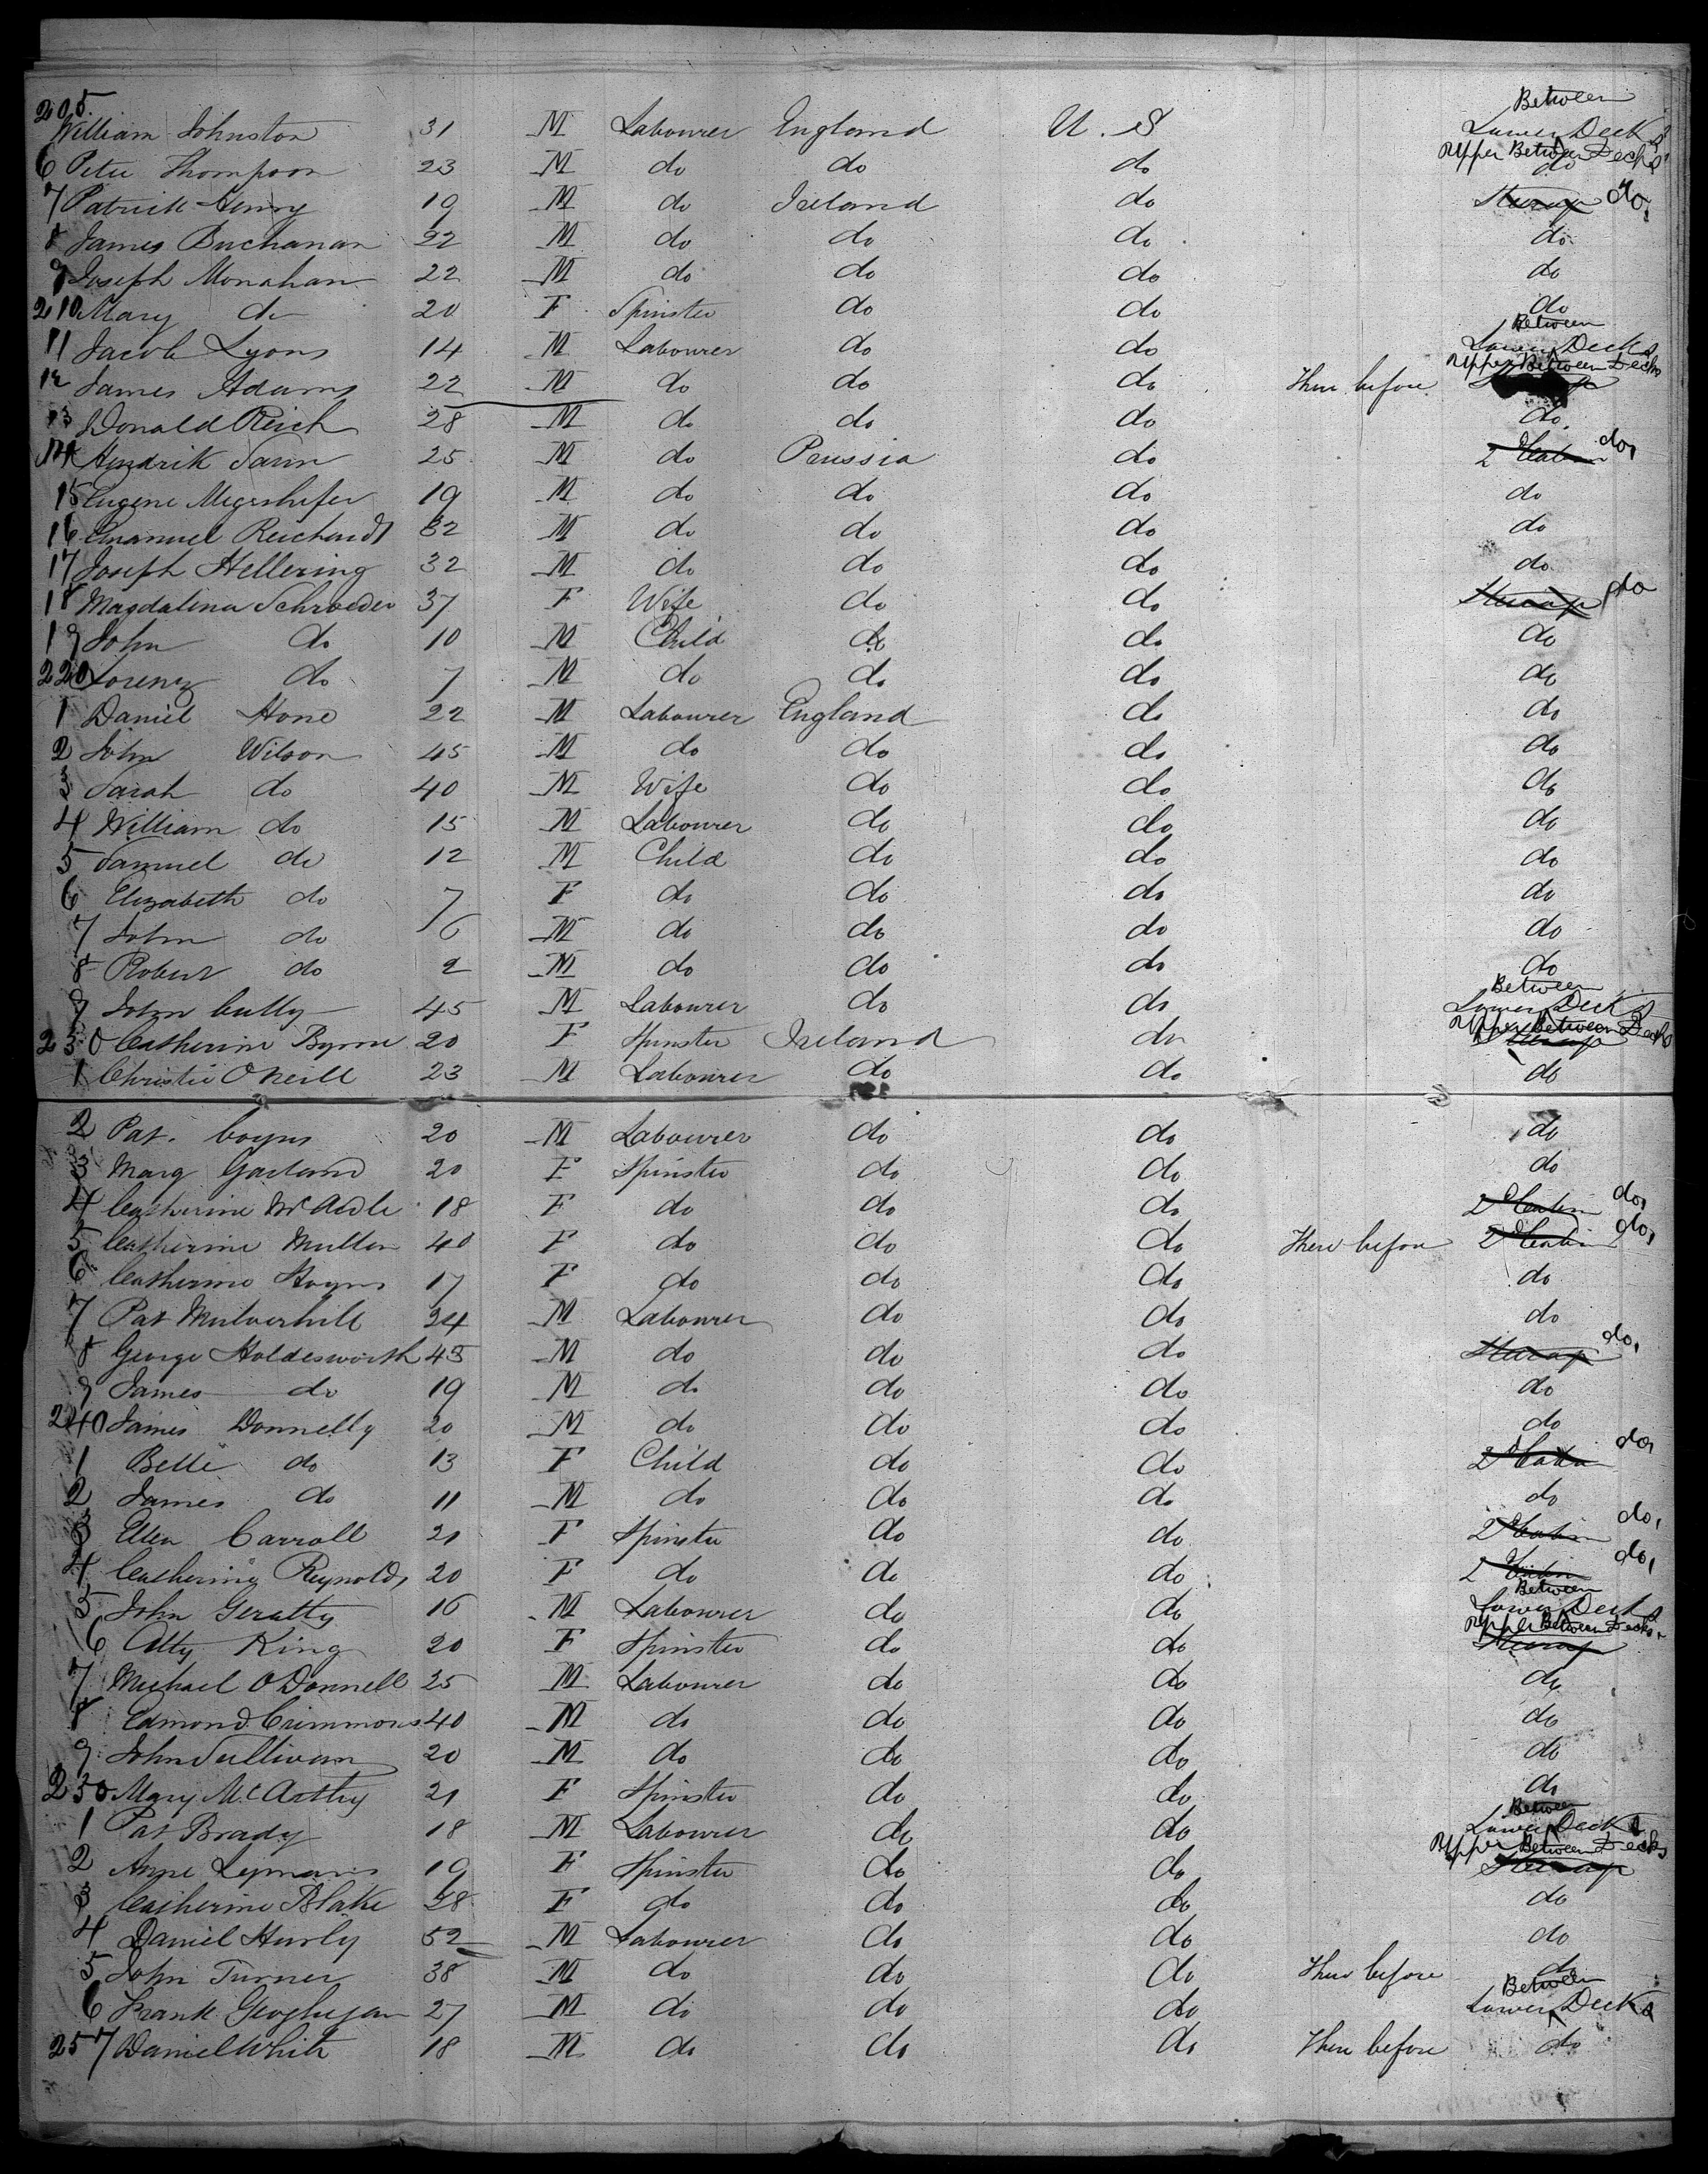 205. William Johnston 31 M Labourer England U.S Lower Between Decks
6 Peter Thompson 23 M do do do Upper Between Decks do
7 Patrick Henry 19 M do Ireland do Steerage do,
8 James Buchanan 22 M do do do do
9 Joseph Monahan 22 M do do do do
210 Mary do 20 F Spinster do do do
11 Jacob Lyons 14 M Labourer do do Lower Between Decks
12 James Adams 22 M do do do There before Upper Between Decks
13 Donald Reich 28 M do do do do
14 Hendrik 25 M do Prussia do 2 Cabin do,
15 Eugene 19 M do do do do
16 Emanuel Reichardt 32 M do do do do
17 Joseph Hellering 32 M do do do do
18 Magdalena Schroeder 37 F Wife do do Steerage do
19 John do 10 M Child do do do
220 Lorenz do 7 M do do do do
1 Daniel Hone 22 M Labourer England do do
2 John Wilson 45 M do do do do
3 Sarah do 40 M Wife do do do
4 William do 15 M Labourer do do do
5 Samuel do 12 M Child do do do
6 Elizabeth do 7 F do do do do
7 John do 6 M do do do do
8 Robert do 2 M do do do do
9 John Cully 45 M Labourer do do Lower Between Decks
230 Catherine Byrne 20 F Spinster Ireland do Upper Between Decks Steerage
1 Christie O'Neill 23 M Labourer do do do
2 Pat. Coyns 20 M Labourer do do do
3 Marg Garland 20 F Spinster do do do
4 Catherine McArdle 18 F do do do 2 Cabin do,
5 Catherine Mullen 40 F do do do There before 2 Cabin do,
6 Catherine 17 F do do do do
7 Pat Mulverhill 24 M Labourer do do do
8 George Holdesworth 45 M do do do Steerage do,
9 James do 19 M do do do do
240 James Donnelly 20 M do do do do
1 Belle do 13 F Child do do 2 Cabin do,
2 James do 11 M do do do do
3 Ellen Carroll 21 F Spinster do do 2 Cabin do,
4 Catherine Reynolds 20 F do do do 2 Cabin do,
5 John Geratty 16 M Labourer do do Lower Between Decks
6 Atty King 20 F Spinster do do Upper Between Decks Steerage
7 Michael O'Donnell 25 M Labourer do do do
8 Edmond Crimmons 40 M do do do do
9 John Sullivan 20 M do do do do
250 Mary McArthy 21 F Spinster do do do
1 Pat Brady 18 M Labourer do do Lower Between Decks
2 Anne 19 F Spinster do do Upper Between Decks Steerage
3 Catherine Blake 28 F do do do do
4 Daniel Hurly 52 M Labourer do do do
5 John Turner 38 M do do do There before do
6 Frank Geoghegan 27 M do do do Lower Between Decks
257 Daniel White 18 M do do do There before do